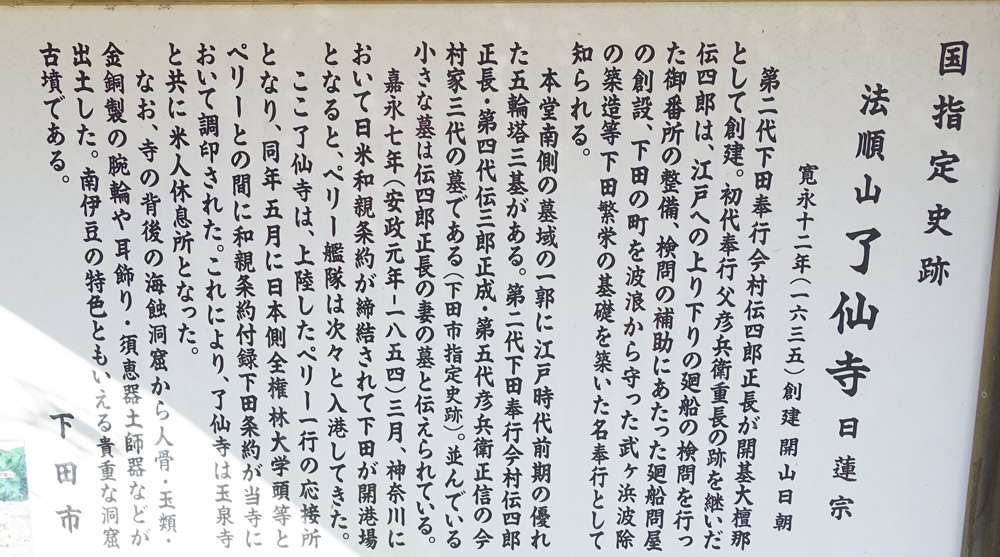 国指定史跡
法順山 了仙寺 日蓮宗
寛永十二年(一六三五)創建 開山日朝
第二代下田奉行今村伝四郎正長が開基大檀那
として創建。初代奉行父彦兵衛重長の跡を継いだ
伝四郎は、江戸への上り下りの廻船の検問を行っ
た御番所の整備、検問の補助にあたった廻船問屋
の創設、下田の町を波浪から守った武ヶ浜波除
の築造等下田繁栄の基礎を築いた名奉行として
知られる。
本堂南側の墓域の一郭に江戸時代前期の優れ
た五輪塔三基がある。第二代下田奉行今村伝四郎
正長・第四代伝三郎正成・第五代彦兵衛正信の今
村家三代の墓である(下田市指定史跡)。並んでいる
小さな墓は伝四郎正長の妻の墓と伝えられている。
嘉永七年(安政元年-一八五四)三月、神奈川に
おいて日米和親条約が締結されて下田が開港場
となると、ペリー艦隊は次々と入港してきた。
ここ了仙寺は、上陸したペリー一行の応接所
となり、同年五月に日本側全権林大学頭等と
ペリーとの間に和親条約付録下田条約が当寺に
おいて調印された。これにより、了仙寺は玉泉寺
と共に米人休息所となった。
なお、寺の背後の海蝕洞窟から人骨・玉類・
金銅製の腕輪や耳飾り・須恵器土師器などが
出土した。南伊豆の特色ともいえる貴重な洞窟
古墳である。
下田市